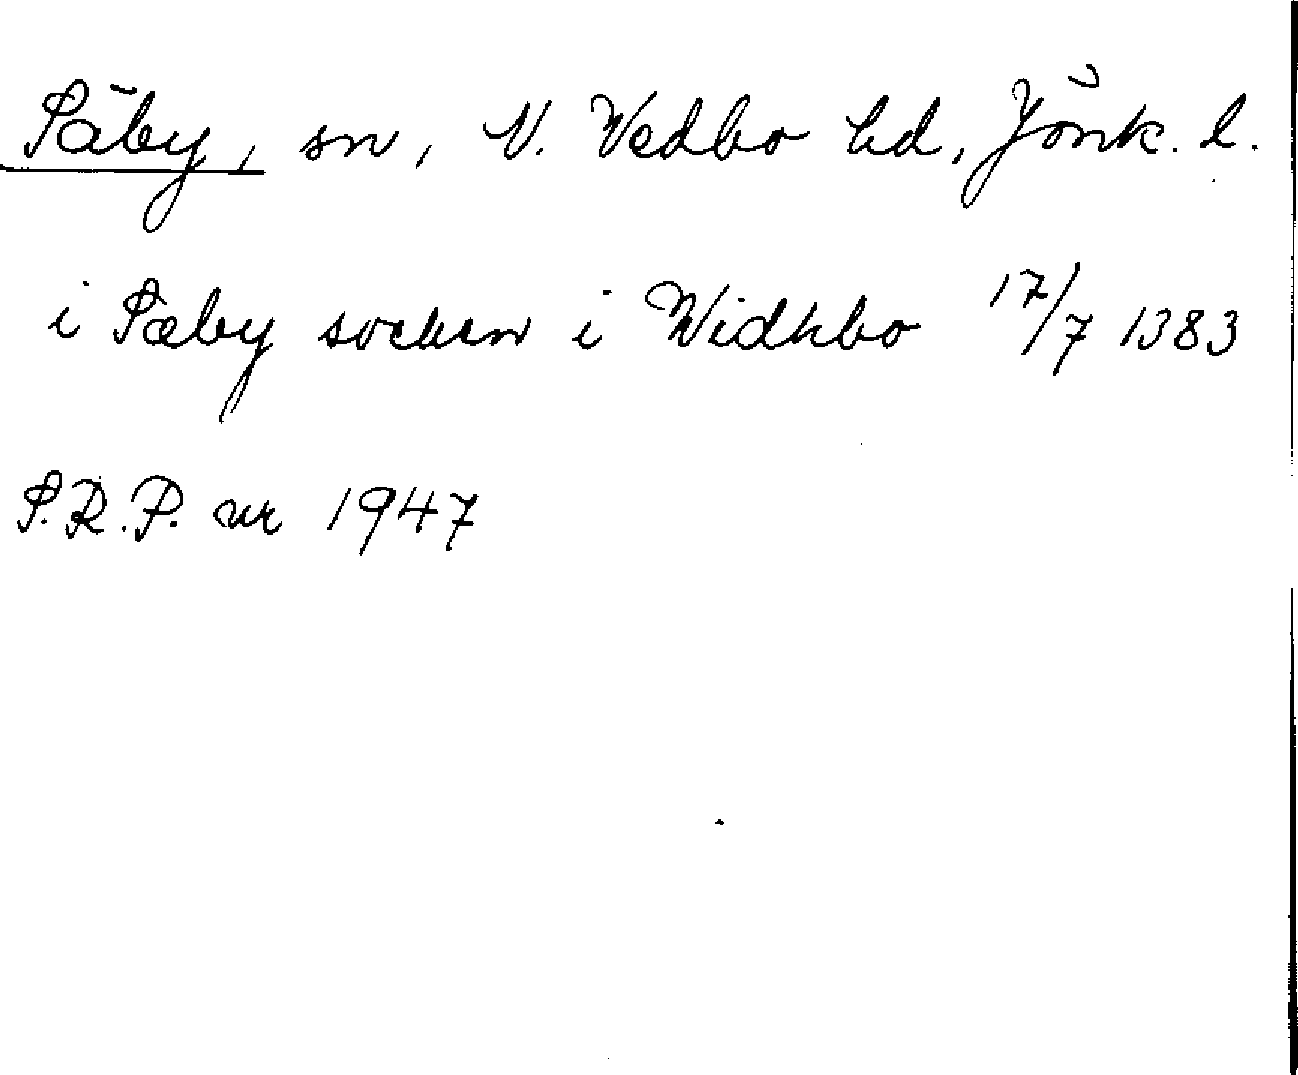 Säby, sn, N. Vedbo hd, Jönk. l.
i Sæby socken i Widhbo 17/7 1383
S.R.P. nr 1947